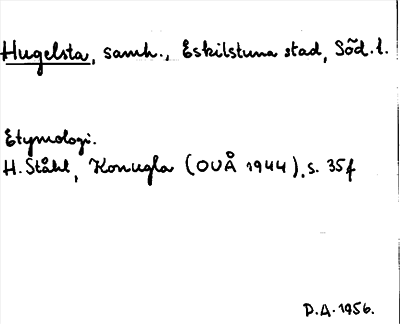 Hugelsta, samh., Eskilstuna stad, Söd. l.
Etymologi.
H. Ståhl, Konugla (OUÅ 1944), s. 35f
D.A. 1956.